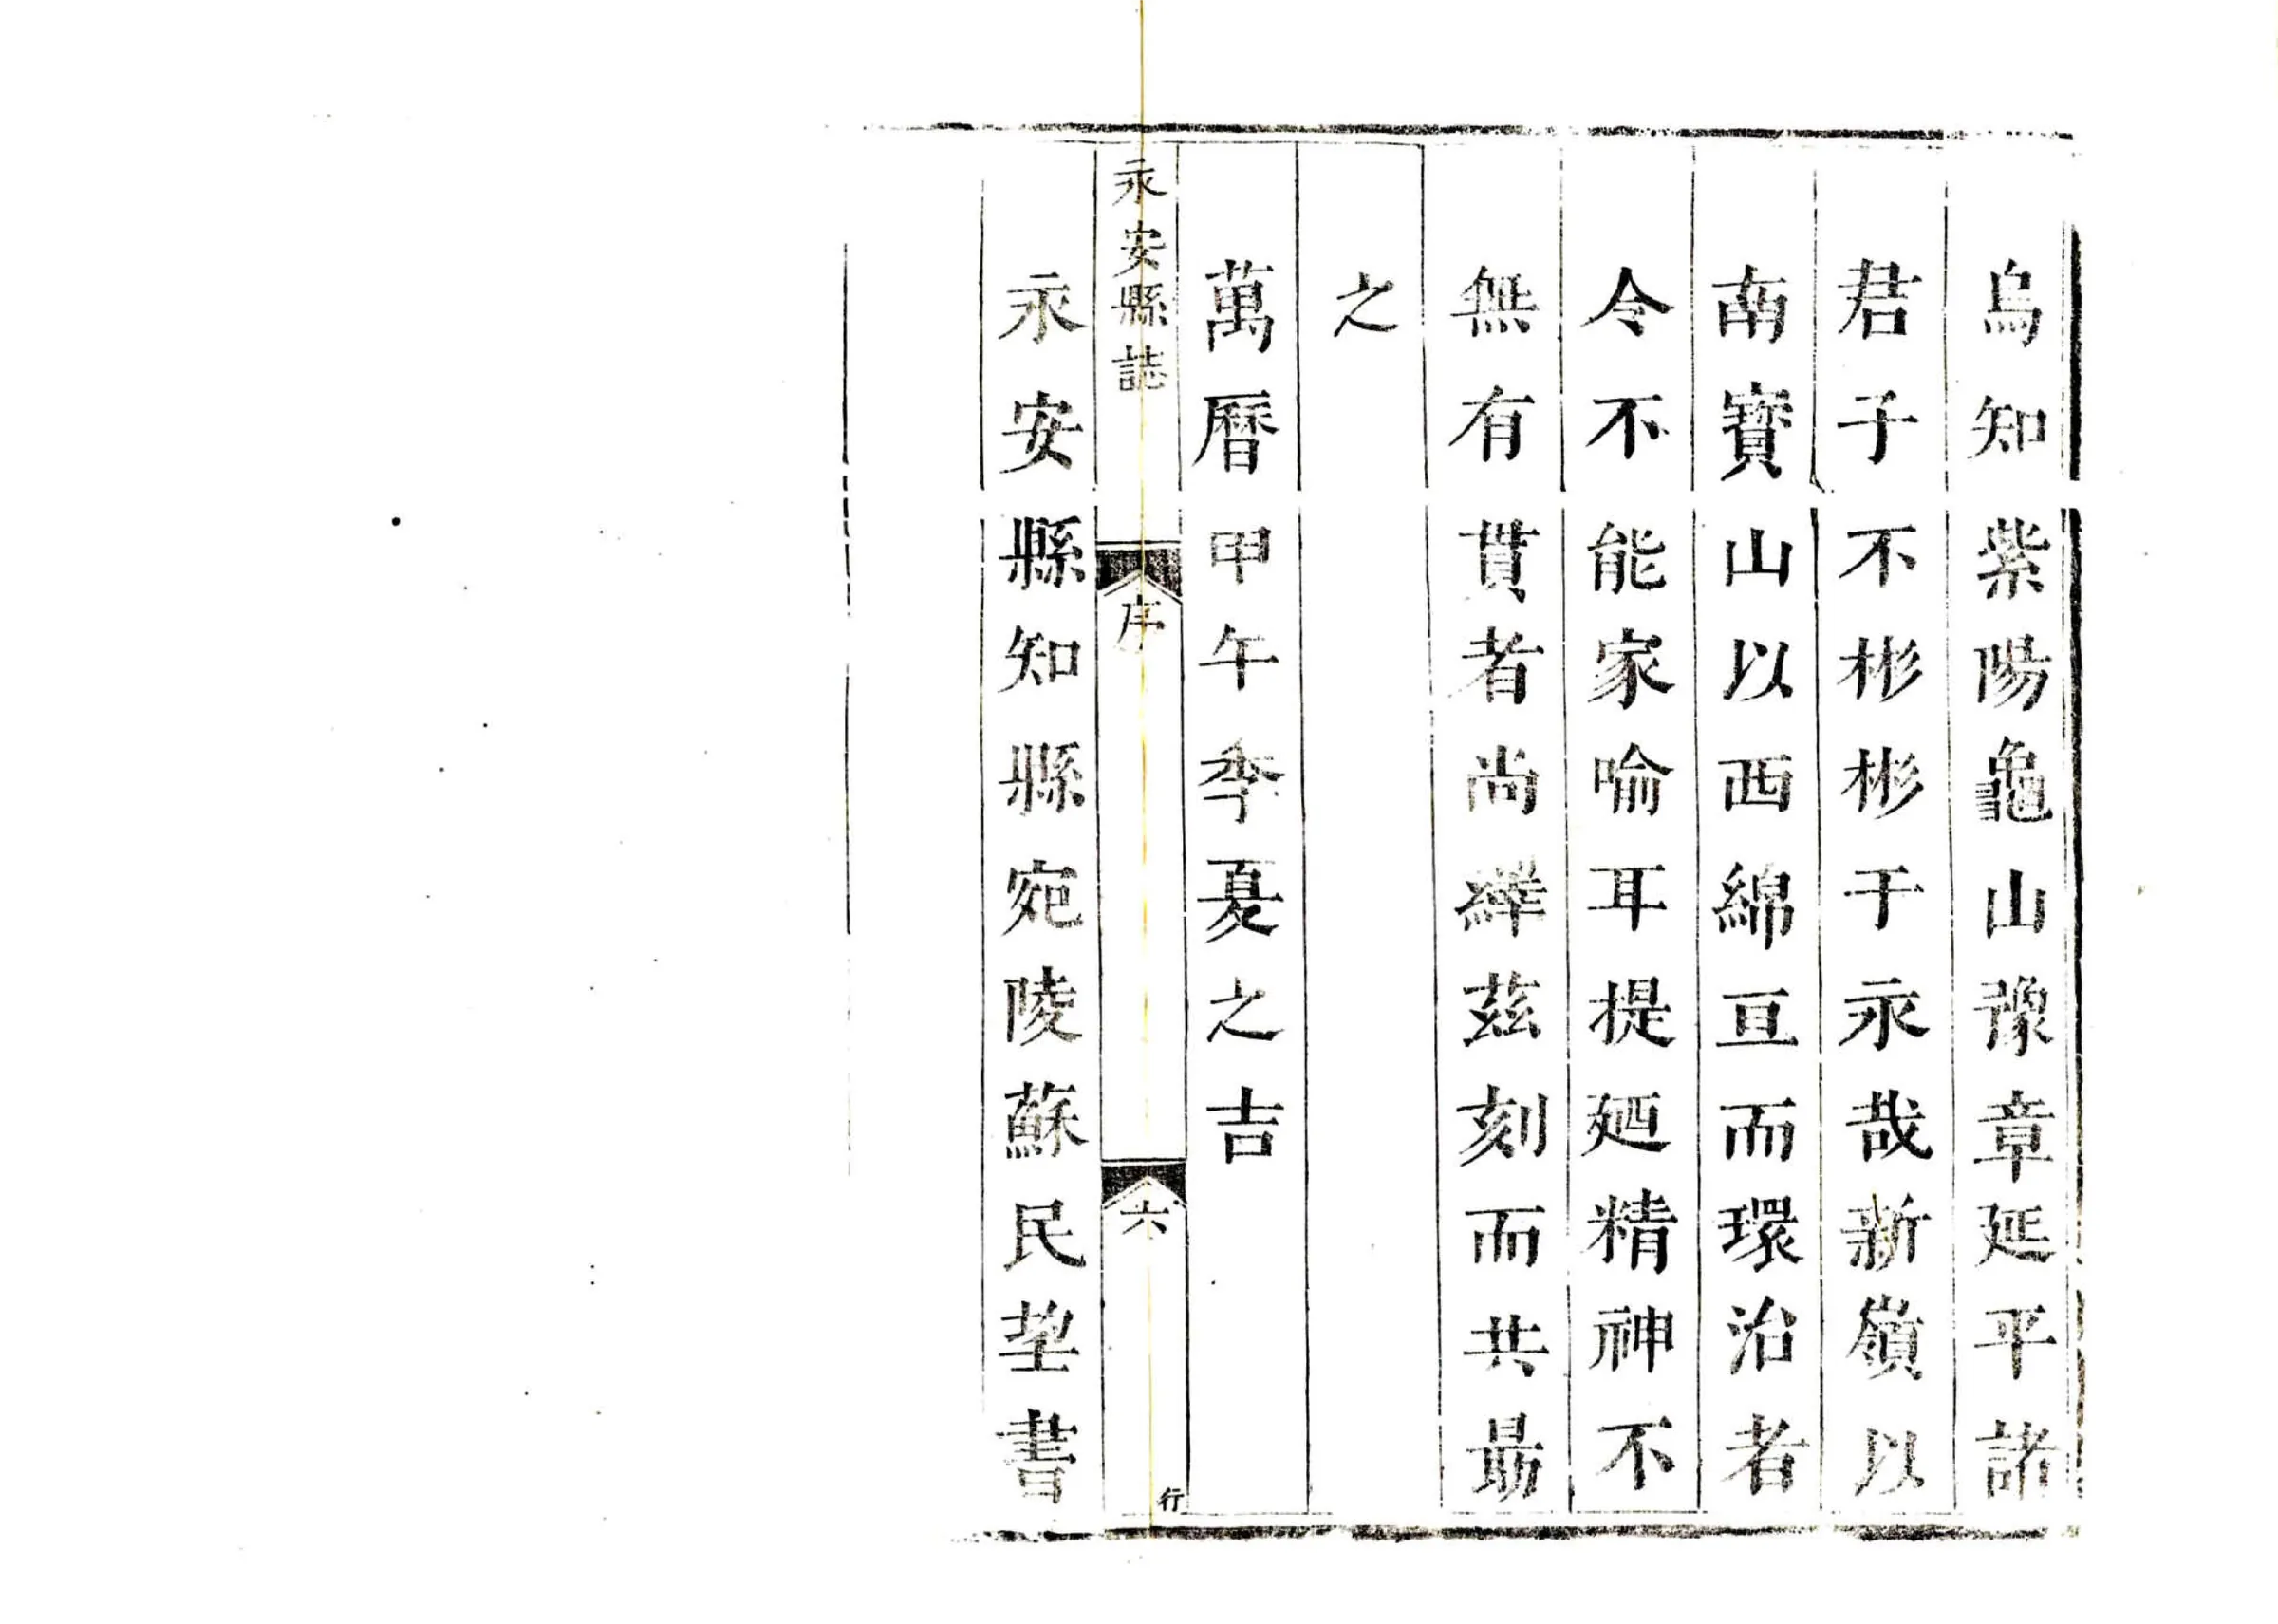 烏知紫陽龜山豫章延平諸
君子不彬彬于永哉新嶺以
南寶山以西綿亘而環治者
令不能家喻耳提廼精神不
無有貫者尚繹茲刻而共勗
之
萬曆甲午季夏之吉
永安縣誌
序
六
行
永安縣知縣宛陵蘇民望書